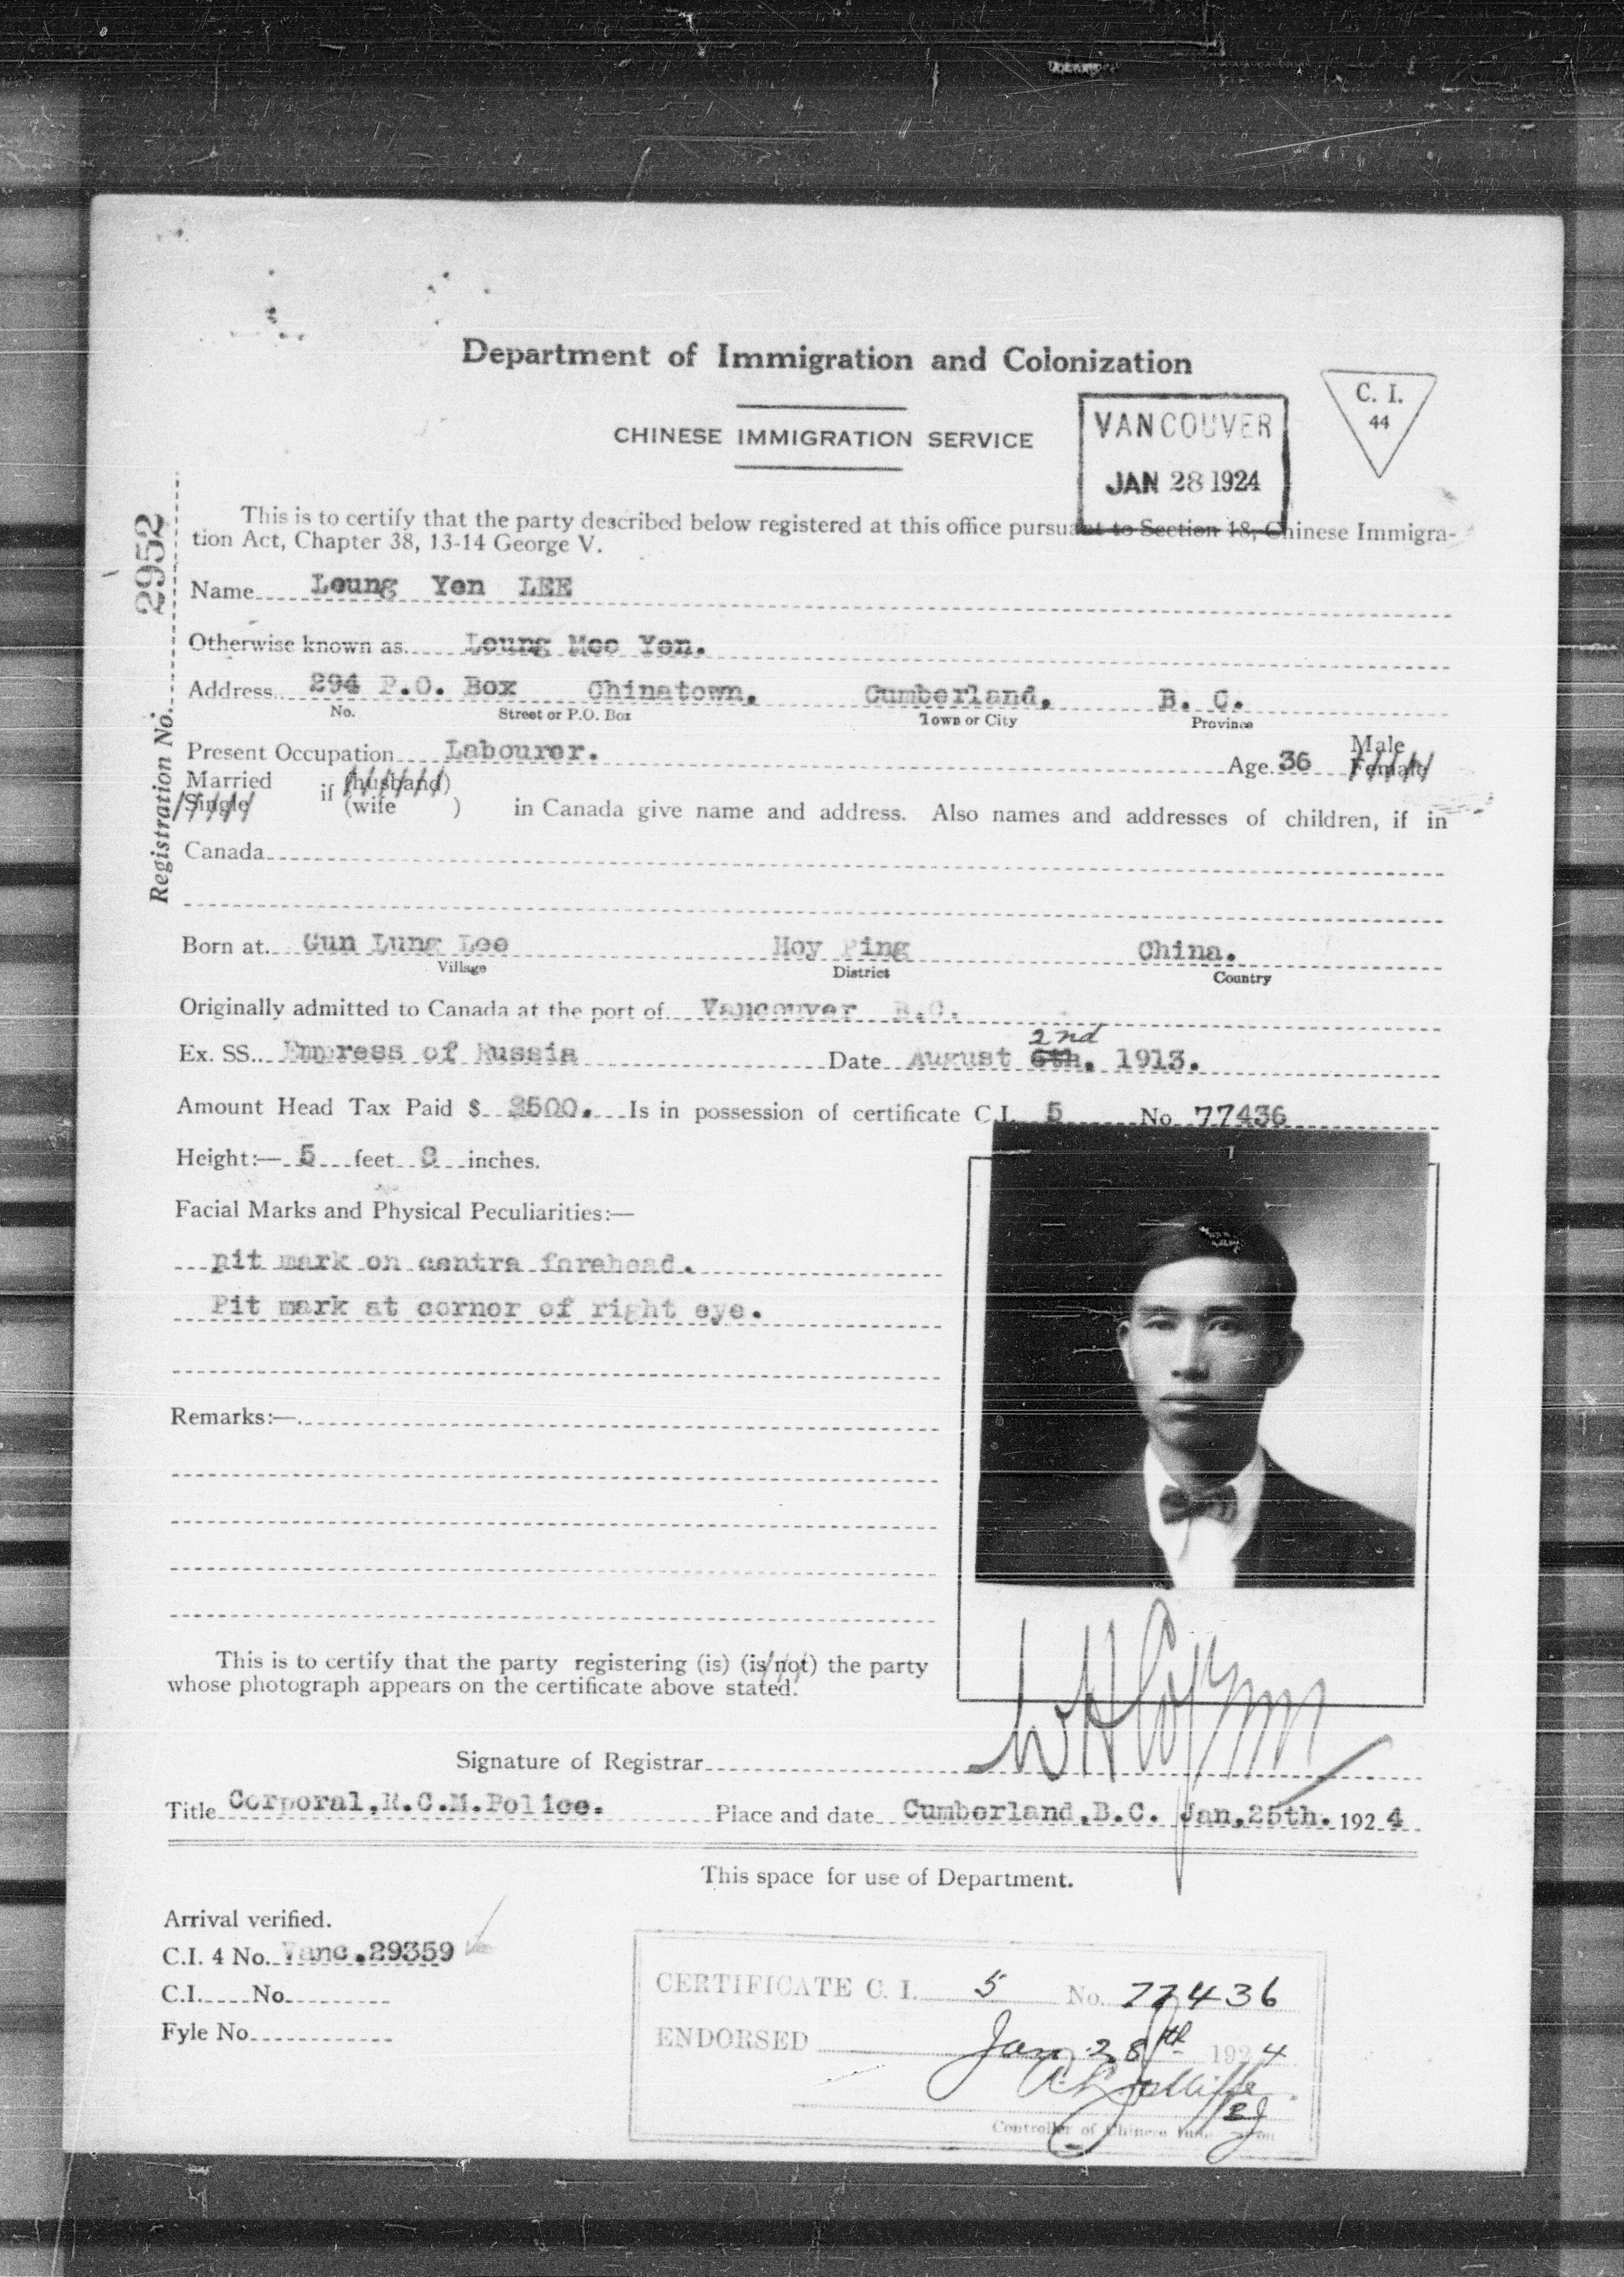 Department of Immigration and Colonization
CHINESE IMMIGRATION SERVICE
VANCOUVER
JAN 28 1924
C. I.
44
Registration No. 2952
This is to certify that the party described below registered at this office pursuant to Section 18, Chinese Immigra-
tion Act, Chapter 38, 13-14 George V.
Name Leung Yen LEE
Otherwise known as Leung Mee Yen.
Address 294 P.O. Box Chinatown, Cumberland, B. C.
No. Street or P.O. Box Town or City Province
Present Occupation Labourer. Age 36 Male
Female
Married
Single
if (husband)
(wife ) in Canada give name and address. Also names and addresses of children, if in
Canada
Born at Gun Lung Lee Hoy Ping China.
Village District Country
Originally admitted to Canada at the port of Vancouver B.C.
2nd
Ex. SS. Empress of Russia Date August 6th. 1913.
Amount Head Tax Paid $ 500. Is in possession of certificate C.I. 5 No. 77436
Height:— 5 feet inches.
Facial Marks and Physical Peculiarities:—
pit mark on centre forehead.
Pit mark at corner of right eye.
Remarks:—
This is to certify that the party registering (is) (is not) the party
whose photograph appears on the certificate above stated.
Signature of Registrar
Title Corporal,R.C.M.Police. Place and date Cumberland,B.C. Jan,25th. 1924
This space for use of Department.
Arrival verified.
C.I. 4 No. Vanc.29359
C.I. No.
Fyle No.
CERTIFICATE C. I. 5 No. 77436
ENDORSED Jan 28th 1924
Controller of Chinese